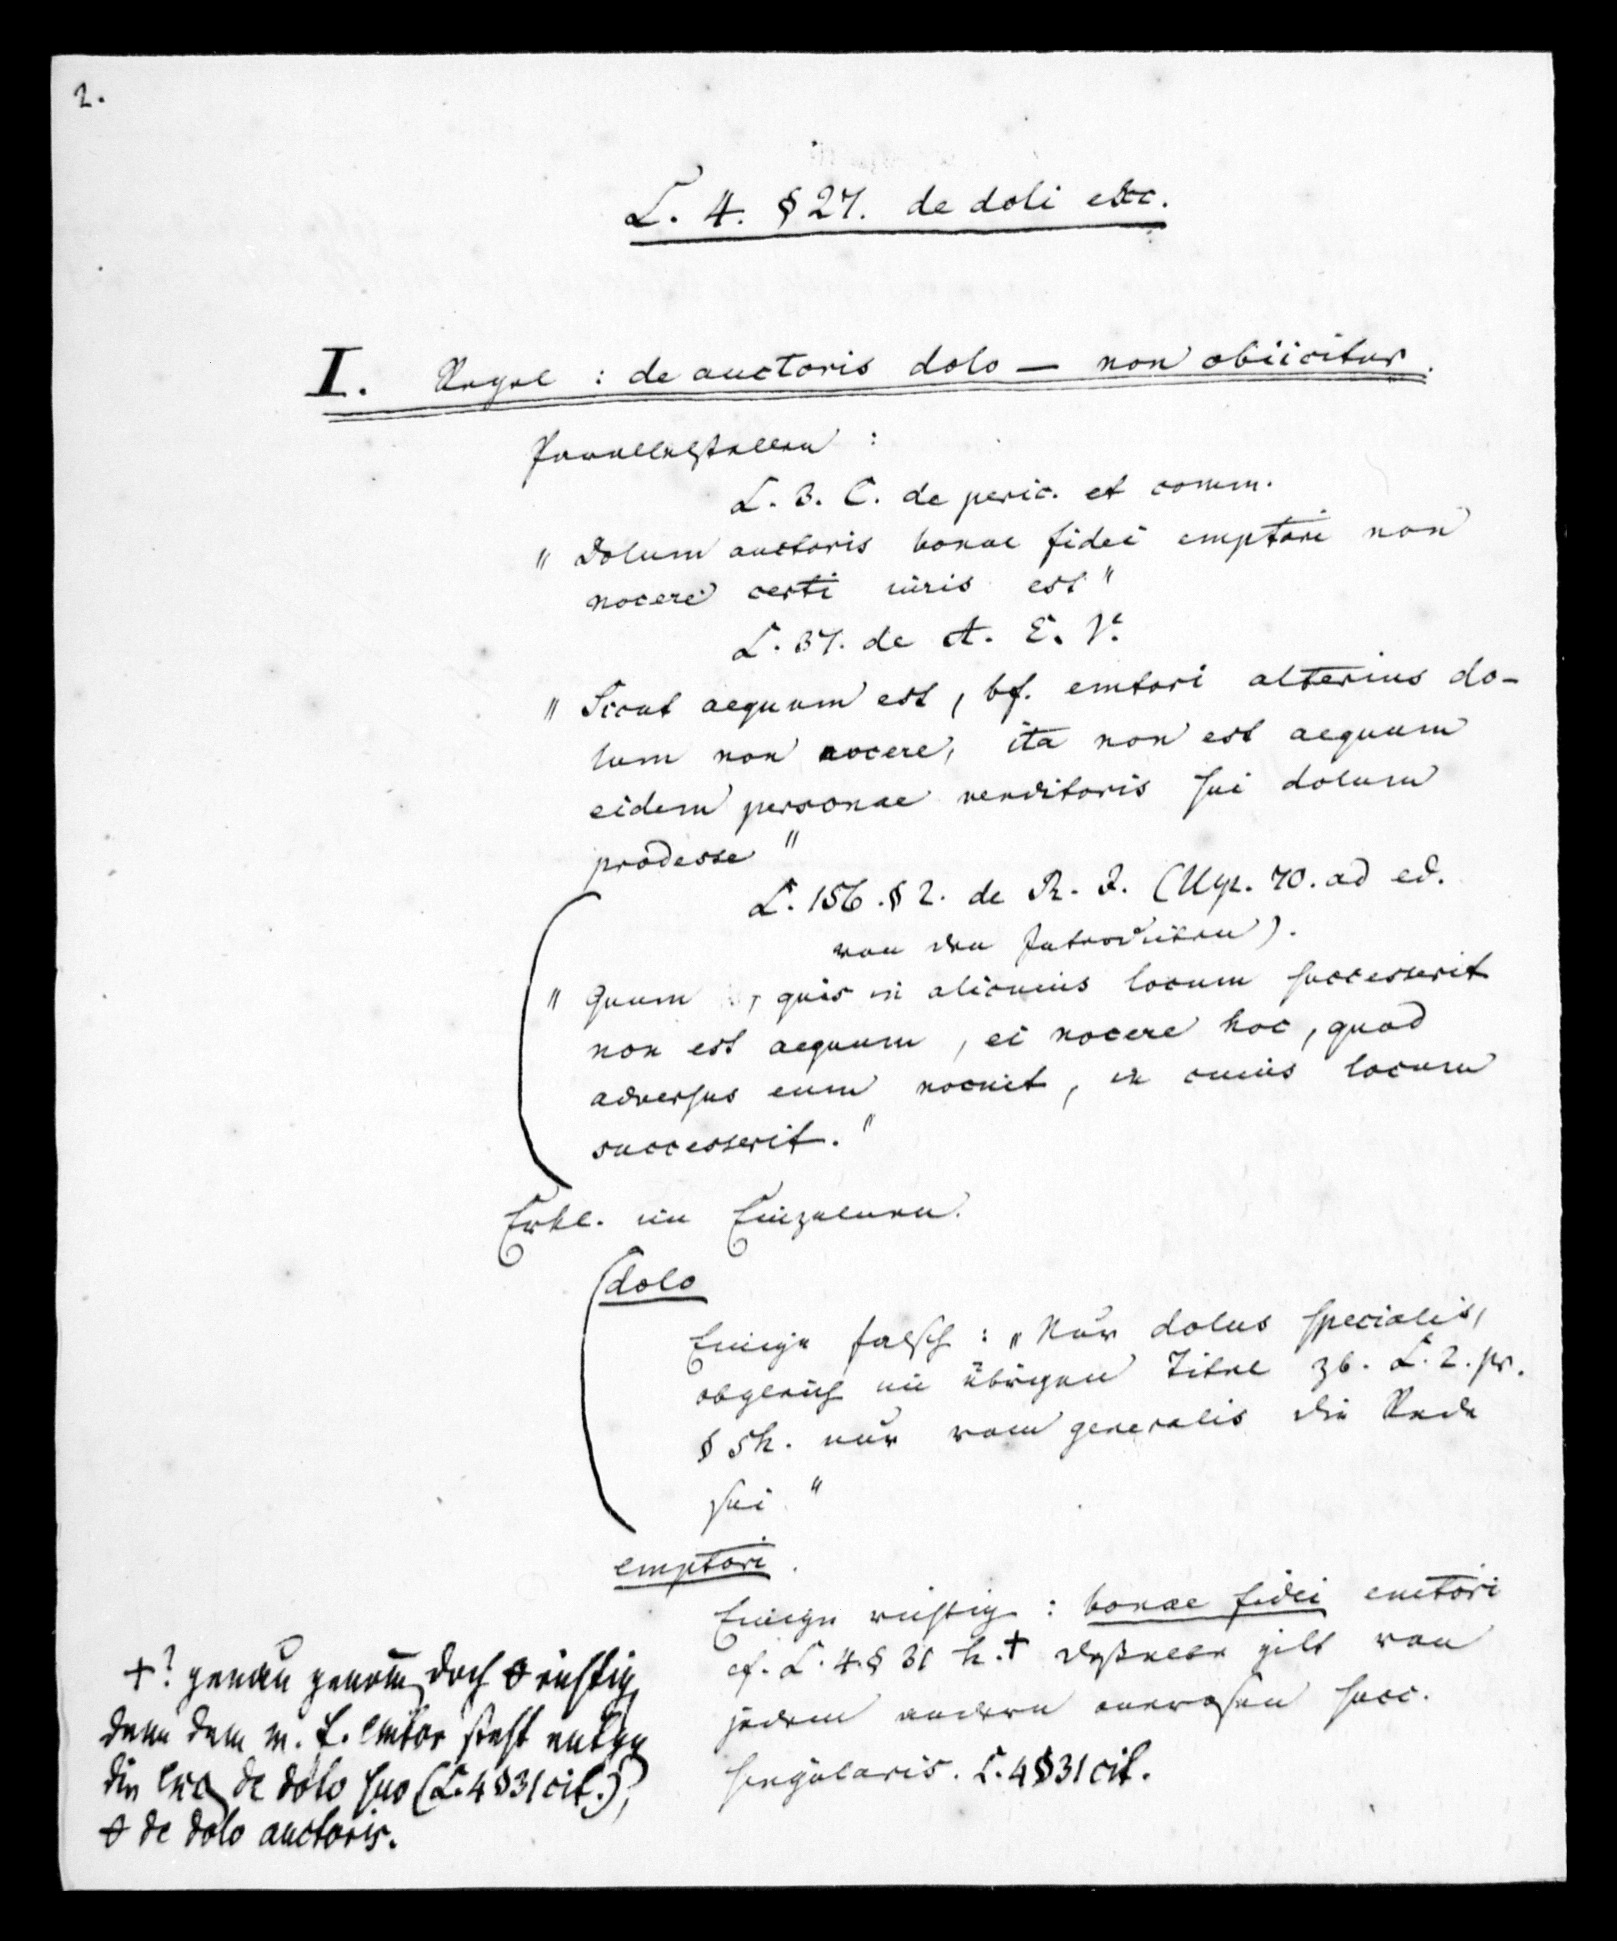 2.
L. 4. § 27. de doli etc.
I. Regel : de auctoris dolo — non obiicitur.
Parallelstellen :
L. 3. C. de peric. et comm.
" Dolum auctoris bonae fidei emptori non
nocere certi iuris est "
L. 37. de A. E. V.
" Sicut aequum est, bf. emtori alterius do-
lum non nocere, ita non est aequum
eidem personae venditoris sui dolum
prodesse "
L. 156. § 2. de R. I. (Ulp. 70. ad ed.
von den Interdikten).
" Quum quis in alicuius locum successerit
non est aequum, ei nocere hoc, quod
adversus eum nocuit, in cuius locum
successerit. "
Erkl. im Einzelnen.
dolo
Einige falsch : „ Nur dolus specialis,
obgleich im übrigen Titel zb. L. 2. pr.
§ 5 h. nur vom generalis die Rede
sei "
emptori.
Einige richtig : bonae fidei emtori
cf. L. 4. § 31 h. + Dasselbe gilt von
jedem andern onerosen succ.
singularis. L. 4 § 31 cit.
+? genau genom̄ doch richtig
denn dem m. f. emtor steht entgg
die exc de dolo suo (L. 4 § 31 cit.),
de dolo auctoris.